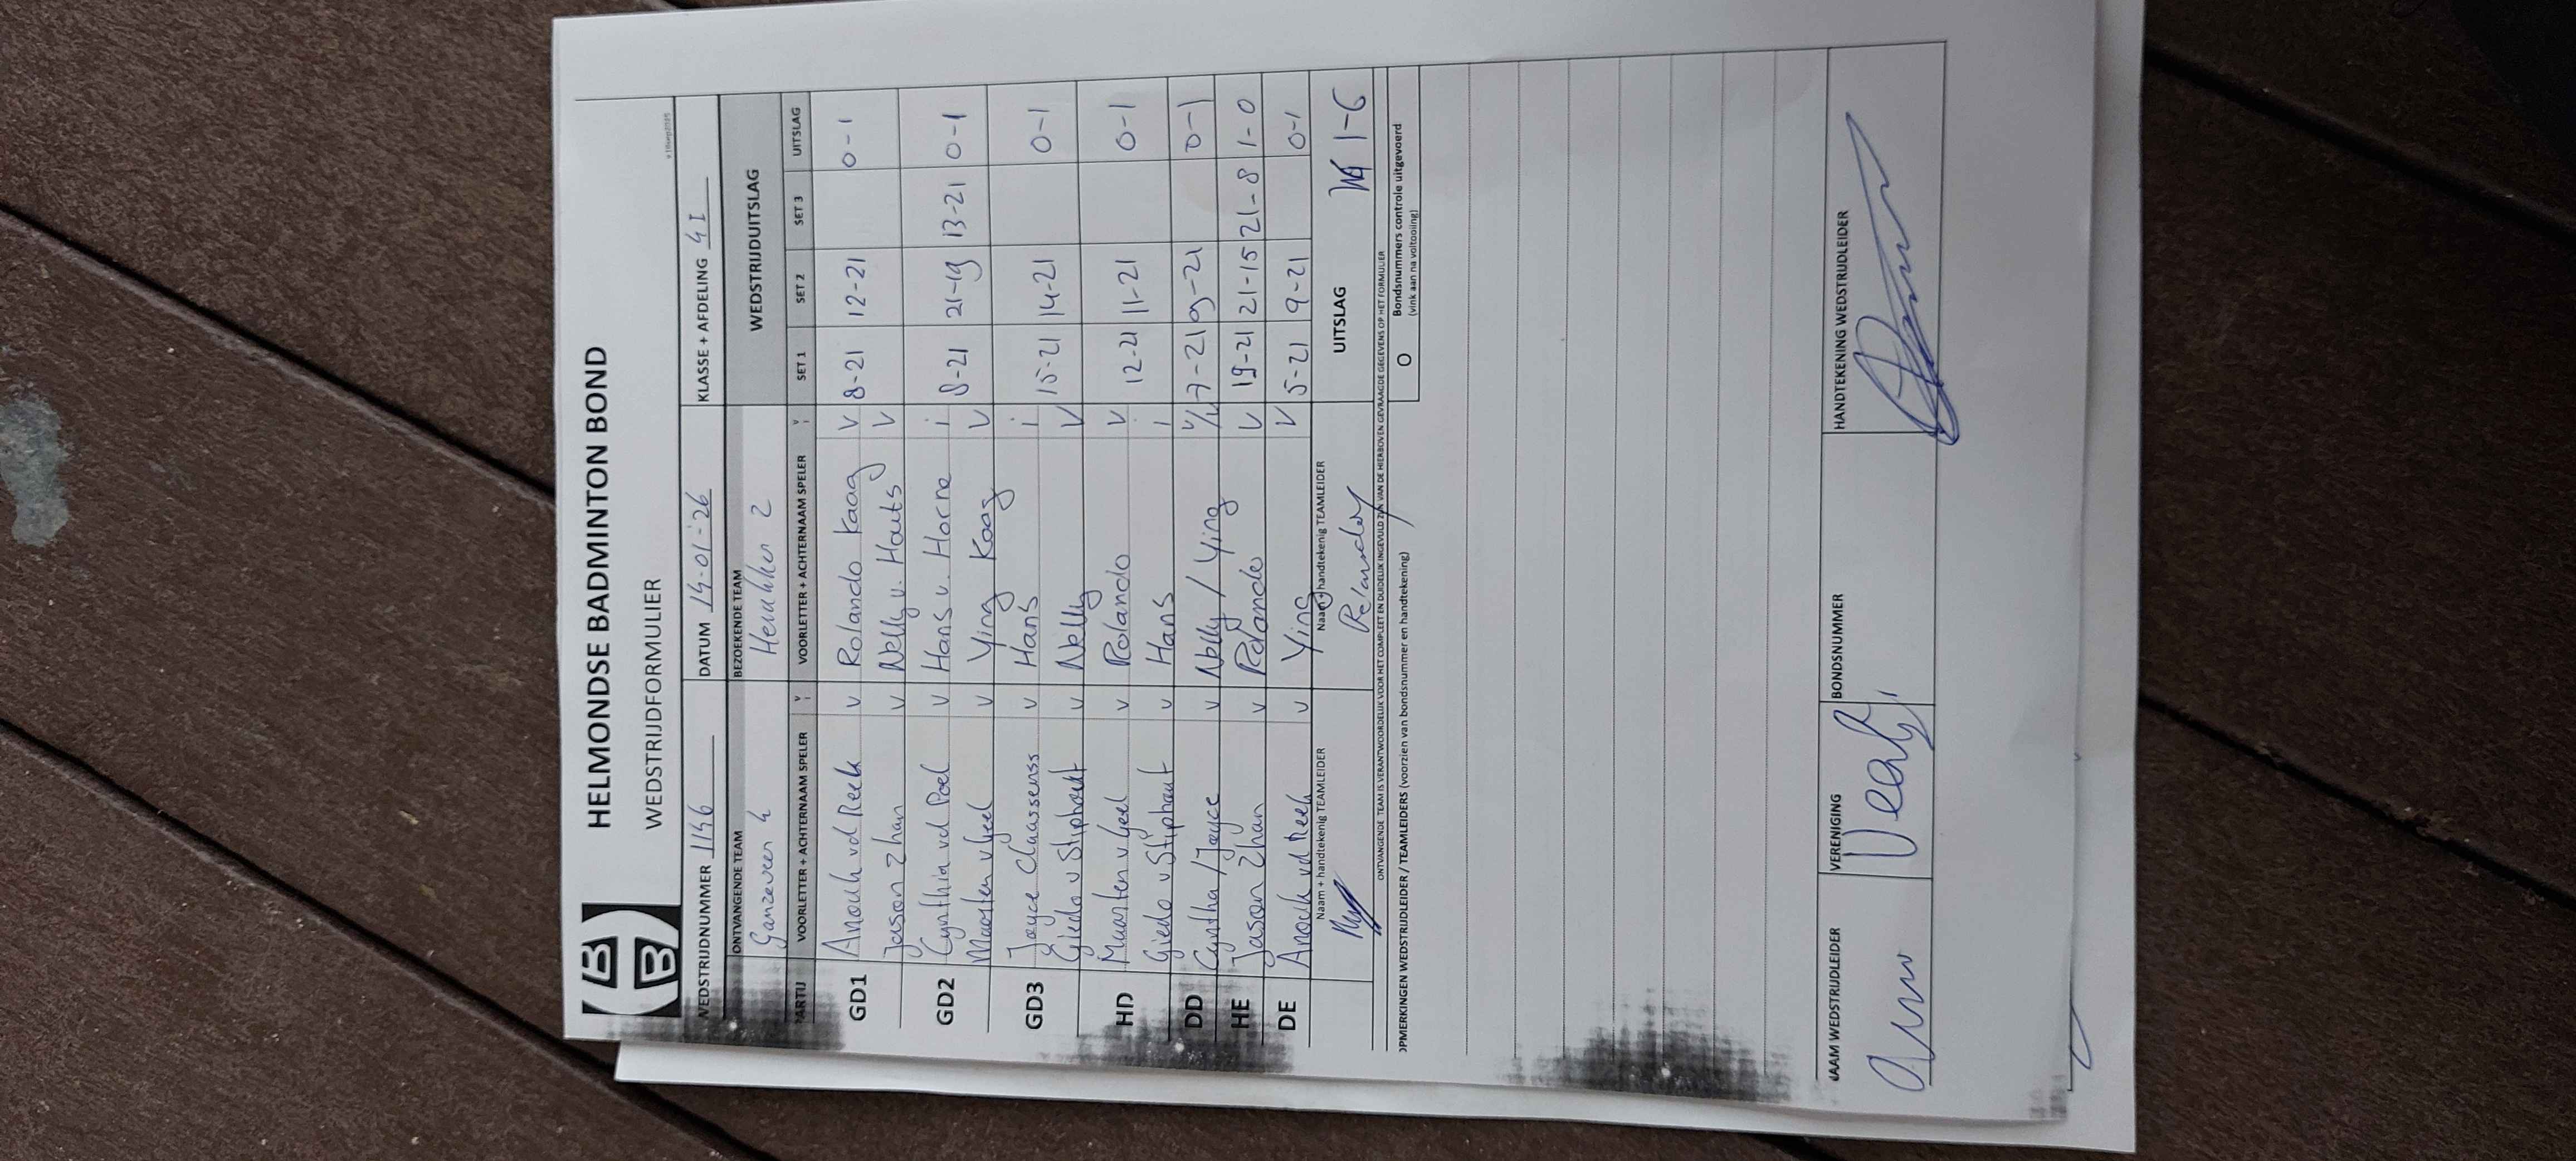 HELMONDSE BADMINTON BOND
WEDSTRIJDFORMULIER
v.18sep2025
WEDSTRIJDNUMMER 1146 DATUM 14-01-'26 KLASSE + AFDELING 4I
ONTVANGENDE TEAM BEZOEKENDE TEAM WEDSTRIJDUITSLAG
Ganzeveer 4 2
PARTIJ VOORLETTER + ACHTERNAAM SPELER V VOORLETTER + ACHTERNAAM SPELER V SET 1 SET 2 SET 3 UITSLAG
GD1 Anouk vd Reek v Rolando Kaag V 8-21 12-21 0-1
Jason Zhan v Nelly v. Houts V
GD2 Cynthia vd Poel v Hans v. Horne i 8-21 21-19 13-21 0-1
Maarten v Geel v Ying Kaag V
GD3 Joyce Claassenss v Hans i 15-21 14-21 0-1
Giedo v Stiphout v Nelly V
HD Maarten v Geel v Rolando V 12-21 11-21 0-1
Giedo v Stiphout v Hans i
DD Cyntha / Joyce v Nelly / Ying V/V 7-21 09-21 0-1
HE Jason Zhan v Rolando V 19-21 21-15 21-8 1-0
DE Anouk vd Reek v Ying V 5-21 9-21 0-1
Naam + handtekenig TEAMLEIDER Naam + handtekenig TEAMLEIDER UITSLAG 1-6
ONTVANGENDE TEAM IS VERANTWOORDELIJK VOOR HET COMPLEET EN DUIDELIJK INGEVULD ZIJN VAN DE HIERBOVEN GEVRAAGDE GEGEVENS OP HET FORMULIER
OPMERKINGEN WEDSTRIJDLEIDER / TEAMLEIDERS (voorzien van bondsnummer en handtekening) O Bondsnummers controle uitgevoerd
(vink aan na voltooiing)
NAAM WEDSTRIJDLEIDER VERENIGING BONDSNUMMER HANDTEKENING WEDSTRIJDLEIDER